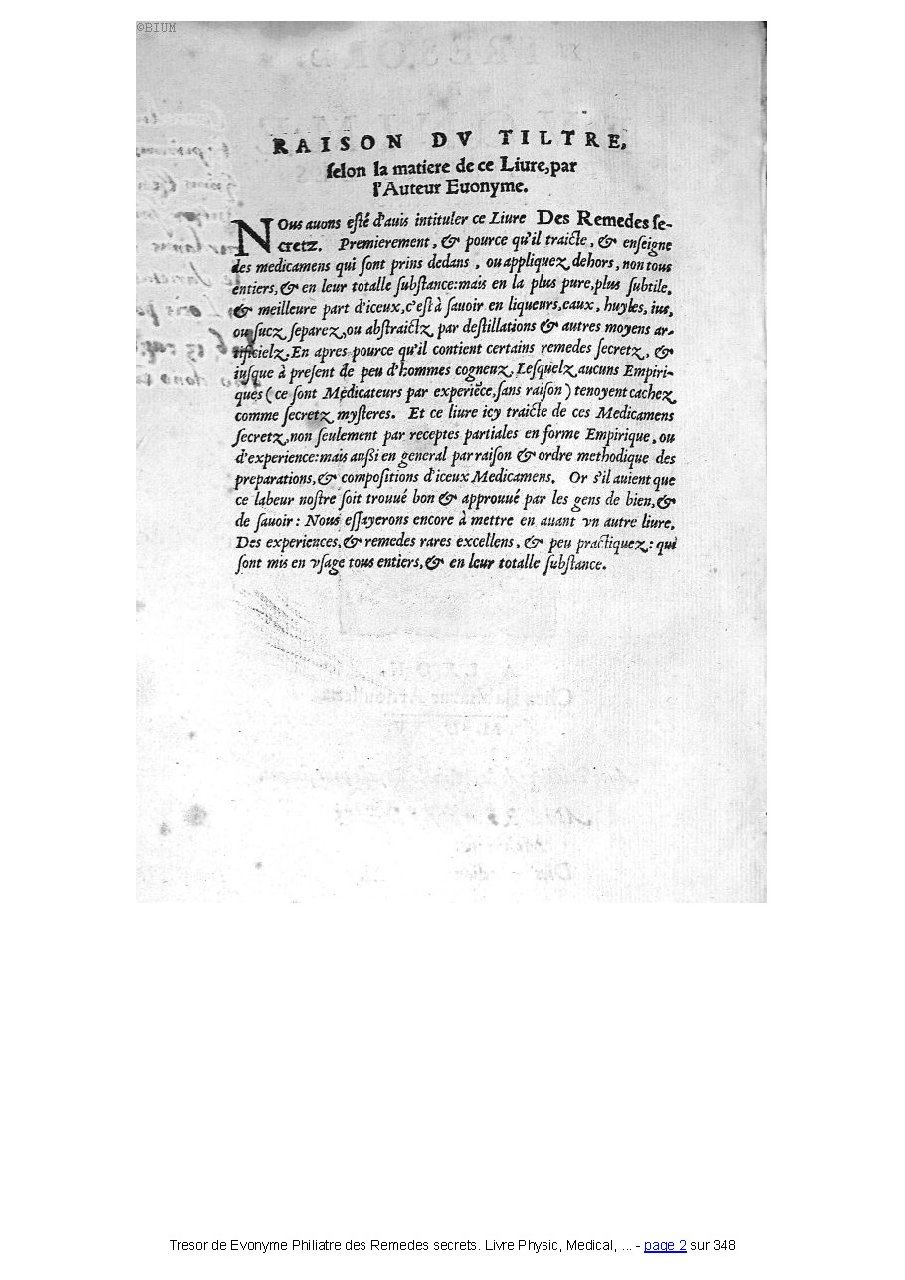 ©BIUM
RAISON DV TILTRE,
ſelon la matiere de ce Liure, par
l'Auteur Euonyme.
NOus auons eſté d'auis intituler ce Liure Des Remedes ſe-
cretz. Premierement, & pource qu'il traicte, & enſeigne
des medicamens qui ſont prins dedans, ou appliquez dehors, non tous
entiers, & en leur totalle ſubſtance: mais en la plus pure, plus ſubtile,
& meilleure part d'iceux, c'eſt à ſauoir en liqueurs, eaux, huyles, ius,
ou ſucz ſeparez, ou abſtraictz par deſtillations & autres moyens ar-
tificielz. En apres pource qu'il contient certains remedes ſecretz, &
iuſque à preſent de peu d'hommes cogneuz, Leſquelz aucuns Empiri-
ques (ce ſont Medicateurs par experiēce, ſans raiſon) tenoyent cachez
comme ſecretz myſteres. Et ce liure icy traicte de ces Medicamens
ſecretz, non ſeulement par receptes partiales en forme Empirique, ou
d'experience: mais außi en general par raiſon & ordre methodique des
preparations, & compoſitions d'iceux Medicamens. Or s'il auient que
ce labeur noſtre ſoit trouué bon & approuué par les gens de bien, &
de ſauoir: Nous eſſayerons encore à mettre en auant vn autre liure,
Des experiences, & remedes rares excellens, & peu practiquez: qui
ſont mis en vſage tous entiers, & en leur totalle ſubſtance.
Tresor de Evonyme Philiatre des Remedes secrets. Livre Physic, Medical, ... - page 2 sur 348